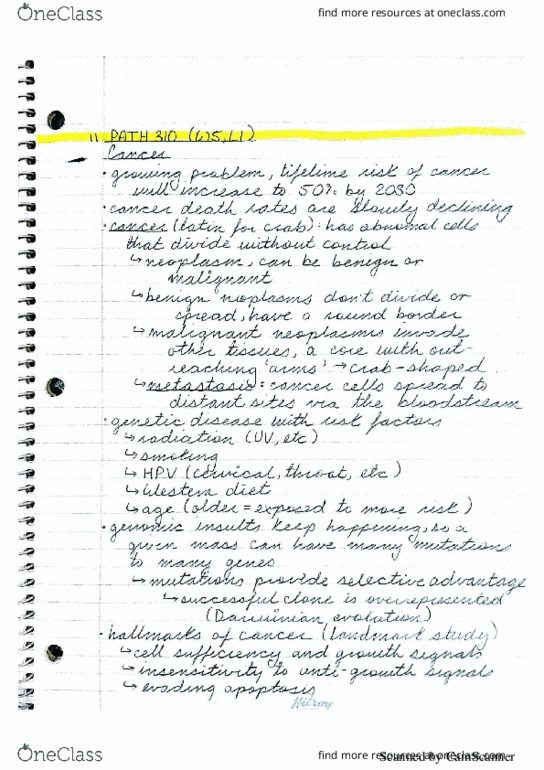 OneClass
find more resources at oneclass.com
PATH 310 (W5, L1)
Cancer
· growing problem, lifetime risk of cancer
will increase to 50% by 2030
· cancer death rates are slowly declining
· cancer (latin for crab): has abnormal cells
that divide without control
↳ neoplasm, can be benign or
malignant
↳ benign neoplasms don't divide or
spread, have a round border
↳ malignant neoplasms invade
other tissues, a core with out-
reaching 'arms' → crab-shaped
↳ metastasis = cancer cells spread to
distant sites via the bloodstream
· genetic disease with risk factors
↳ radiation (UV, etc)
↳ smoking
↳ HPV (cervical, throat, etc)
↳ Western diet
↳ age (older = exposed to more risk)
· genomic insults keep happening, so a
given mass can have many mutations
to many genes
↳ mutations provide selective advantage
↳ successful clone is overrepresented
(Darwinian evolution)
· hallmarks of cancer (landmark study)
↳ cell sufficiency and growth signals
↳ insensitivity to anti-growth signals
↳ evading apoptosis
Hilroy
OneClass
find more resources at oneclass.com
Scanned by CamScanner